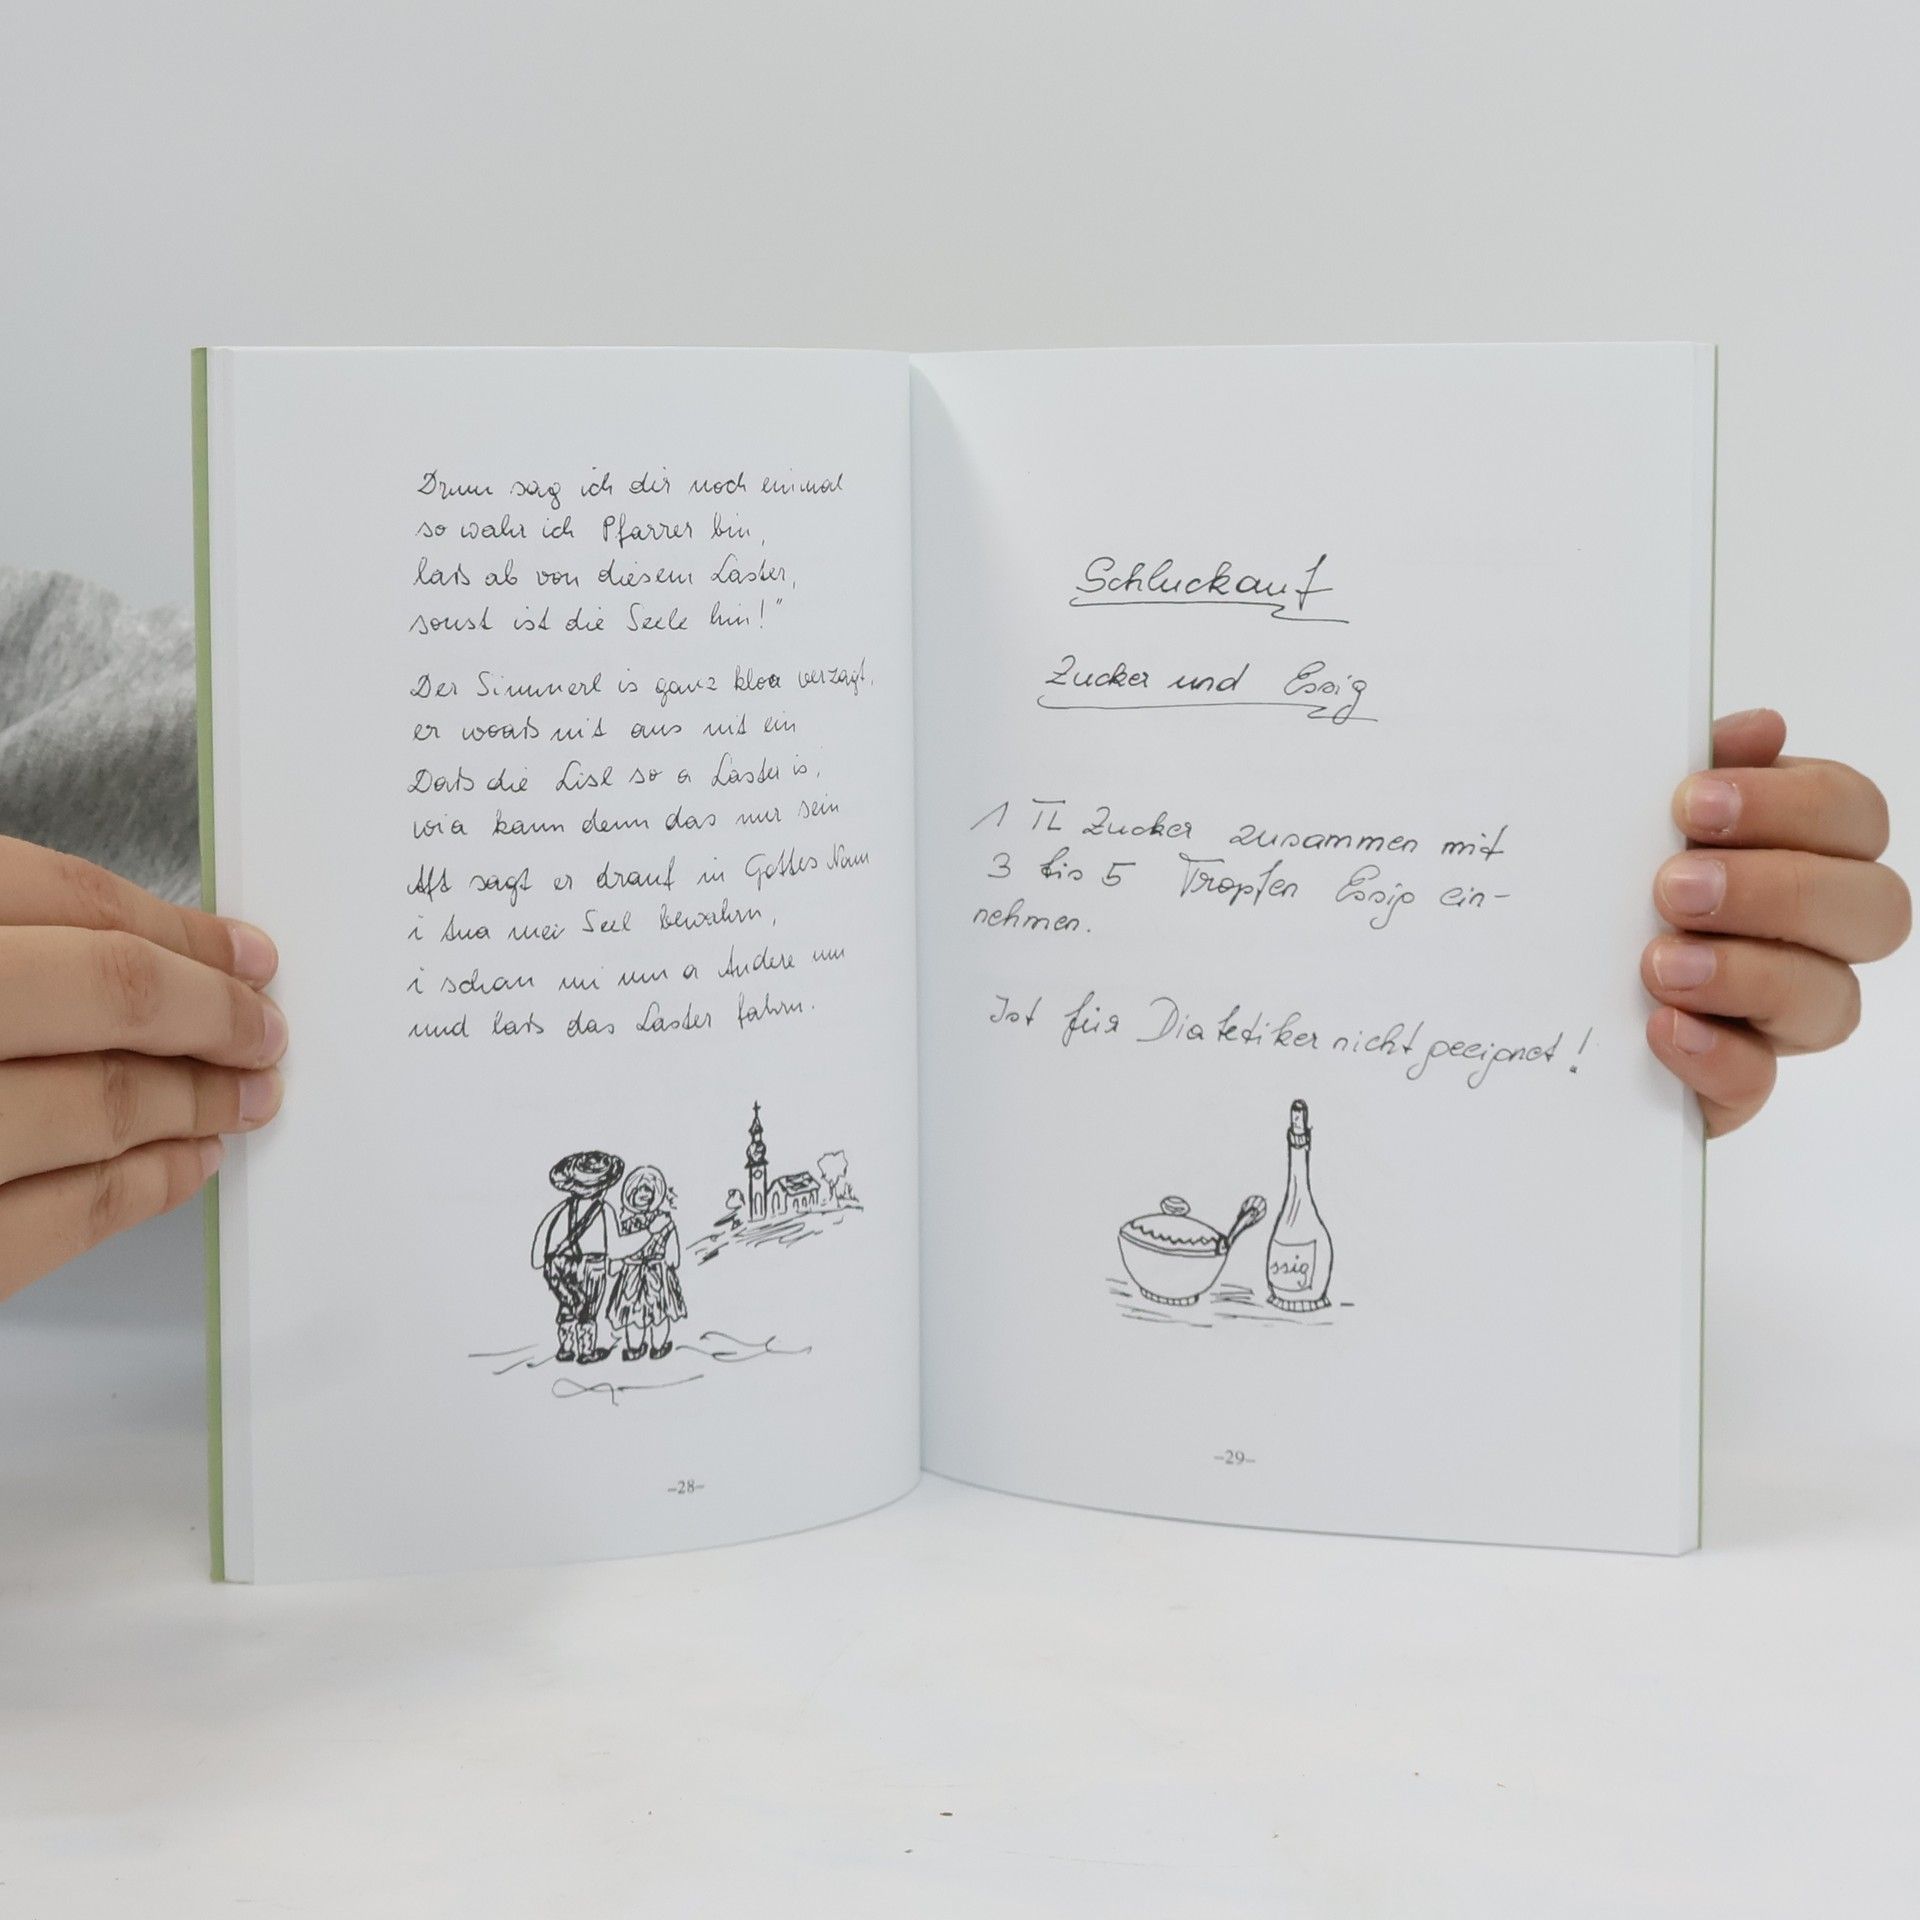 Drum sag ich dir noch einmal
so wahr ich Pfarrer bin,
laß ab von diesem Laster,
sonst ist die Seele hin!"
Der Simmerl is ganz kloa verzagt,
er woaß nit aus nit ein
Daß die Lisl so a Laster is,
wia kann denn das nur sein
Aft sagt er drauf in Gottes Nam
i tua mei Seel bewahrn,
i schau mi um a Andere um
und laß das Laster fahrn.
-28-
Schluckauf
Zucker und Essig
1 TL Zucker zusammen mit
3 bis 5 Tropfen Essig ein-
nehmen.
Ist für Diabetiker nicht geeignet!
ssig
-29-